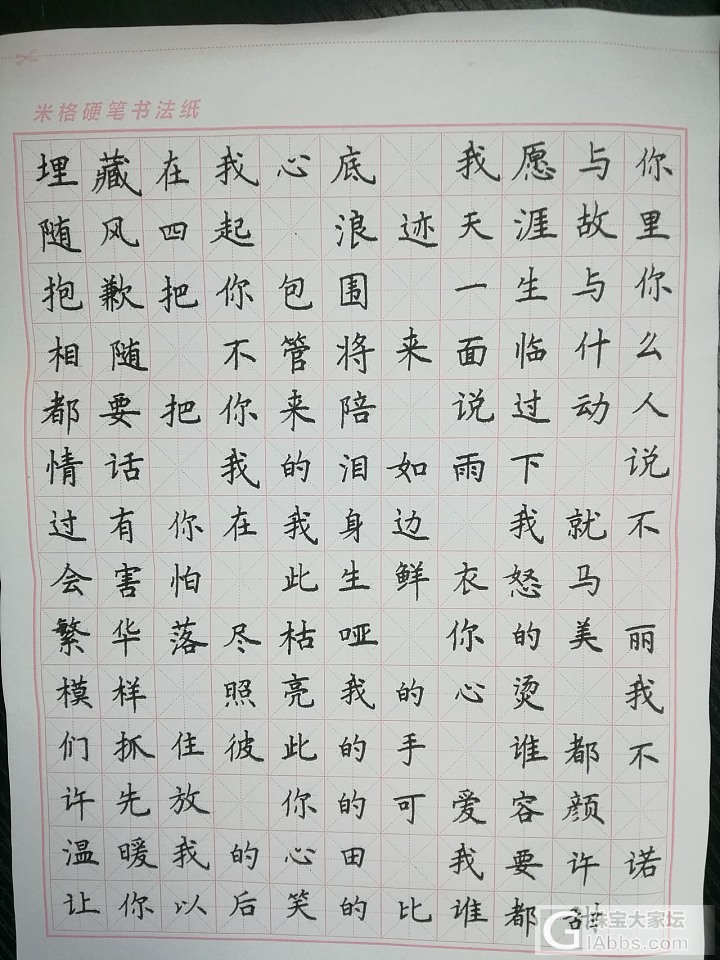 米格硬笔书法纸
埋藏在我心底 我愿与你
随风四起 浪迹天涯故里
抱歉把你包围 一生与你
相随 不管将来面临什么
都要把你来陪 说过动人
情话 我的泪如雨下 说
过有你在我身边 我就不
会害怕 此生鲜衣怒马
繁华落尽枯哑 你的美丽
模样 照亮我的心烫 我
们抓住彼此的手 谁都不
许先放 你的可爱容颜
温暖我的心田 我要许诺
让你以后笑的比谁都甜
珠宝大家坛
GIAbbs.com